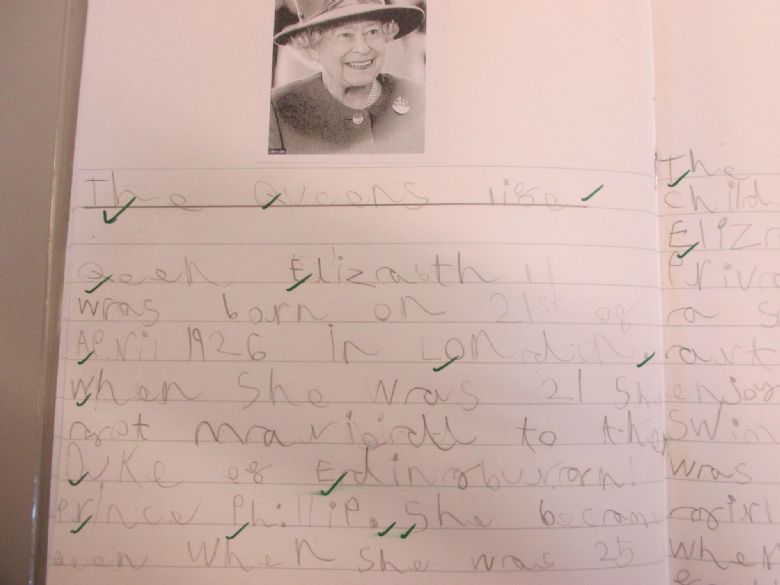 The Queens life
Queen Elizabth II
was born on 21st of
April 1926 in London,
when she was 21 she
got mariedd to the
Duke of
Prince Phillip. She became
when she was 25
The
child
Eliza
Priva
a s
art
enjoy
swim
was
girl
when